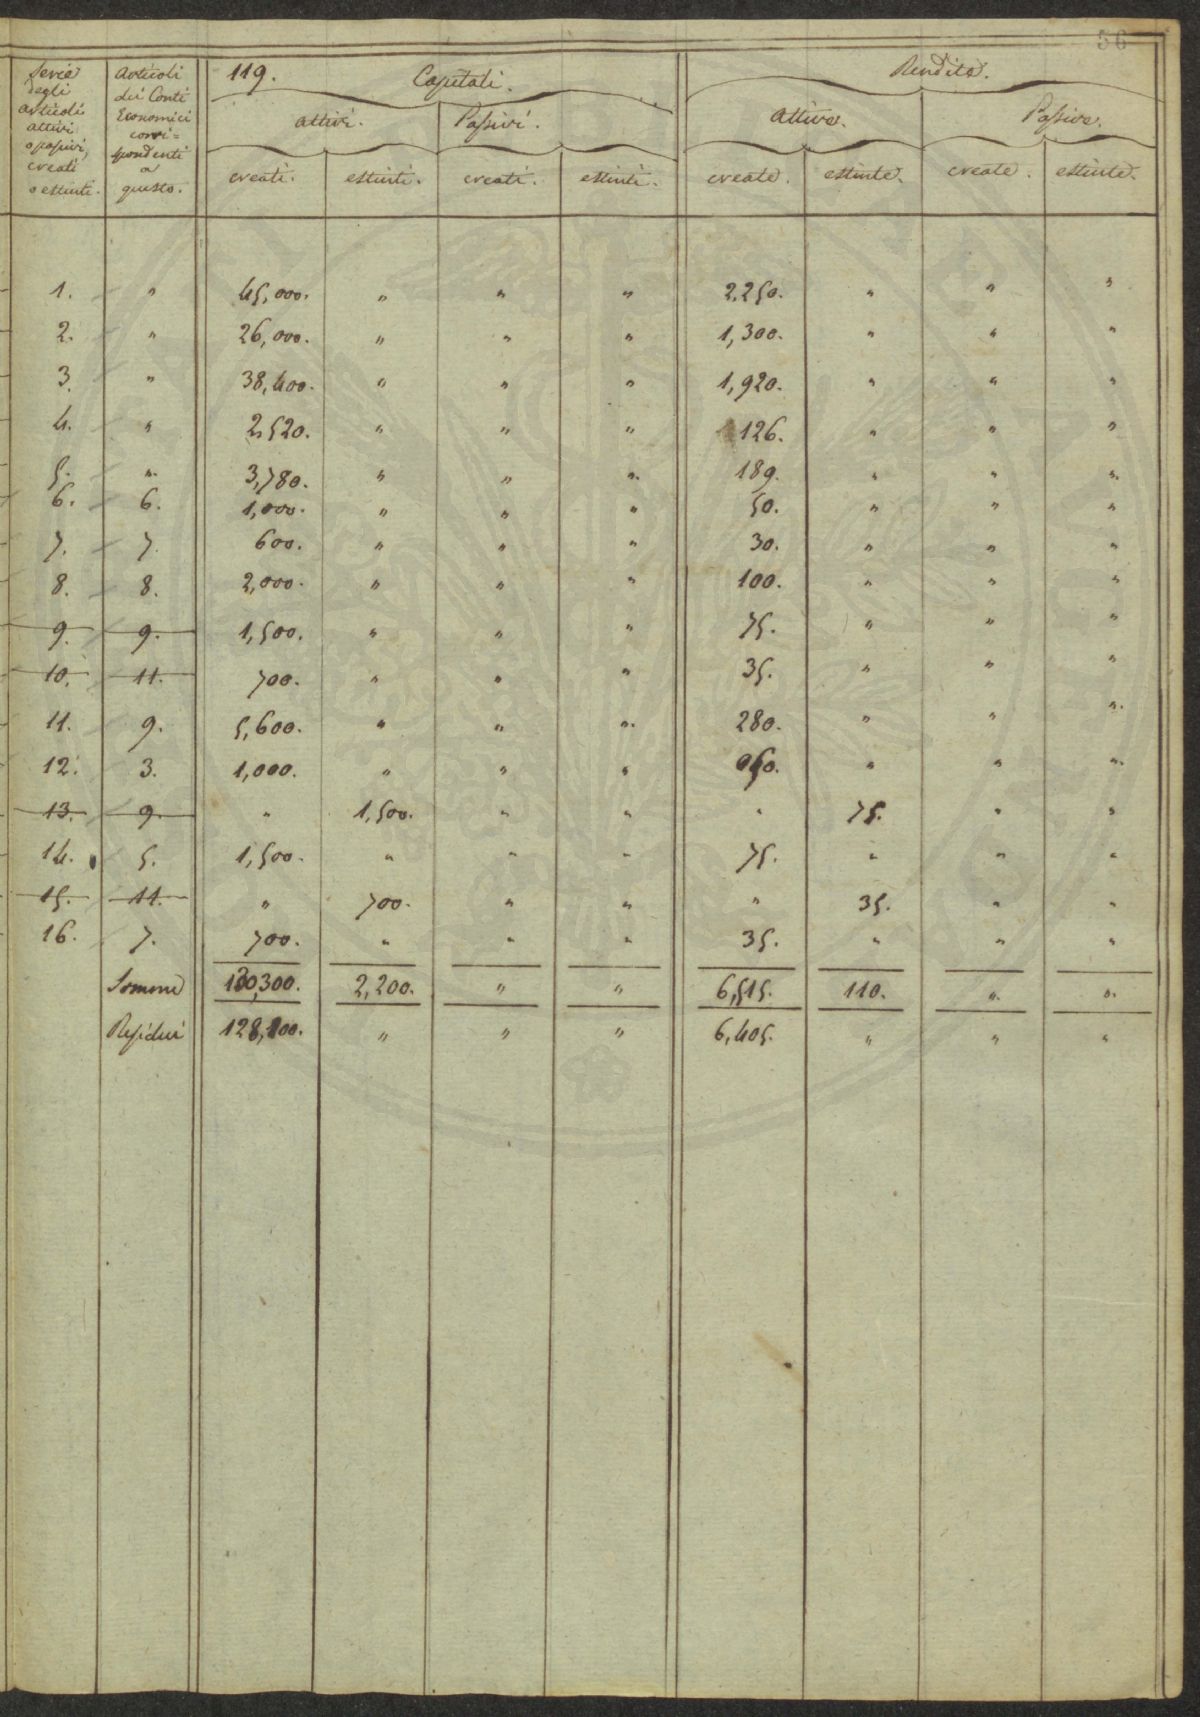 56
119.
Capitali.
Rendite.
Serie
degli
articoli
attivi
o passivi,
creati
o estinti.
Articoli
dei Conti
Economici
corri=
spondenti
a
questo.
attivi. Passivi. Attive. Passive.
creati. estinti. creati. estinti. create. estinte. create. estinte.
1. " 45,000. " " " 2,250. " " "
2. " 26,000. " " " 1,300. " " "
3. " 38,400. " " " 1,920. " " "
4. " 2,520. " " " 126. " " "
5. " 3,780. " " " 189. " " "
6. 6. 1,000. " " " 50. " " "
7. 7. 600. " " " 30. " " "
8. 8. 2,000. " " " 100. " " "
9. 9. 1,500. " " " 75. " " "
10. 11. 700. " " " 35. " " "
11. 9. 5,600. " " " 280. " " "
12. 3. 1,000. " " " 50. " " "
13. 9. " 1,500. " " " 75. " "
14. 5. 1,500. " " " 75. " " "
15. 11. " 700. " " " 35. " "
16. 7. 700. " " " 35. " " "
Somme 130,300. 2,200. " " 6,515. 110. " "
Residui 128,100. " " " 6,405. " " "